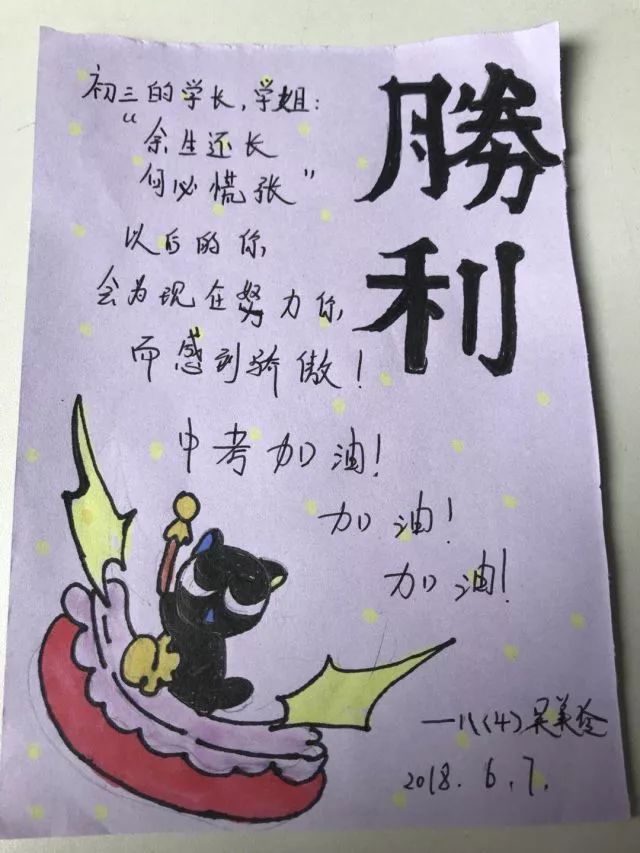 初三的学长，学姐：
“余生还长
何必慌张”
以后的你，
会为现在努力你，
而感到骄傲！
中考加油！
加油！
加油！
勝利
——八(4) 吴美玲
2018.6.7.